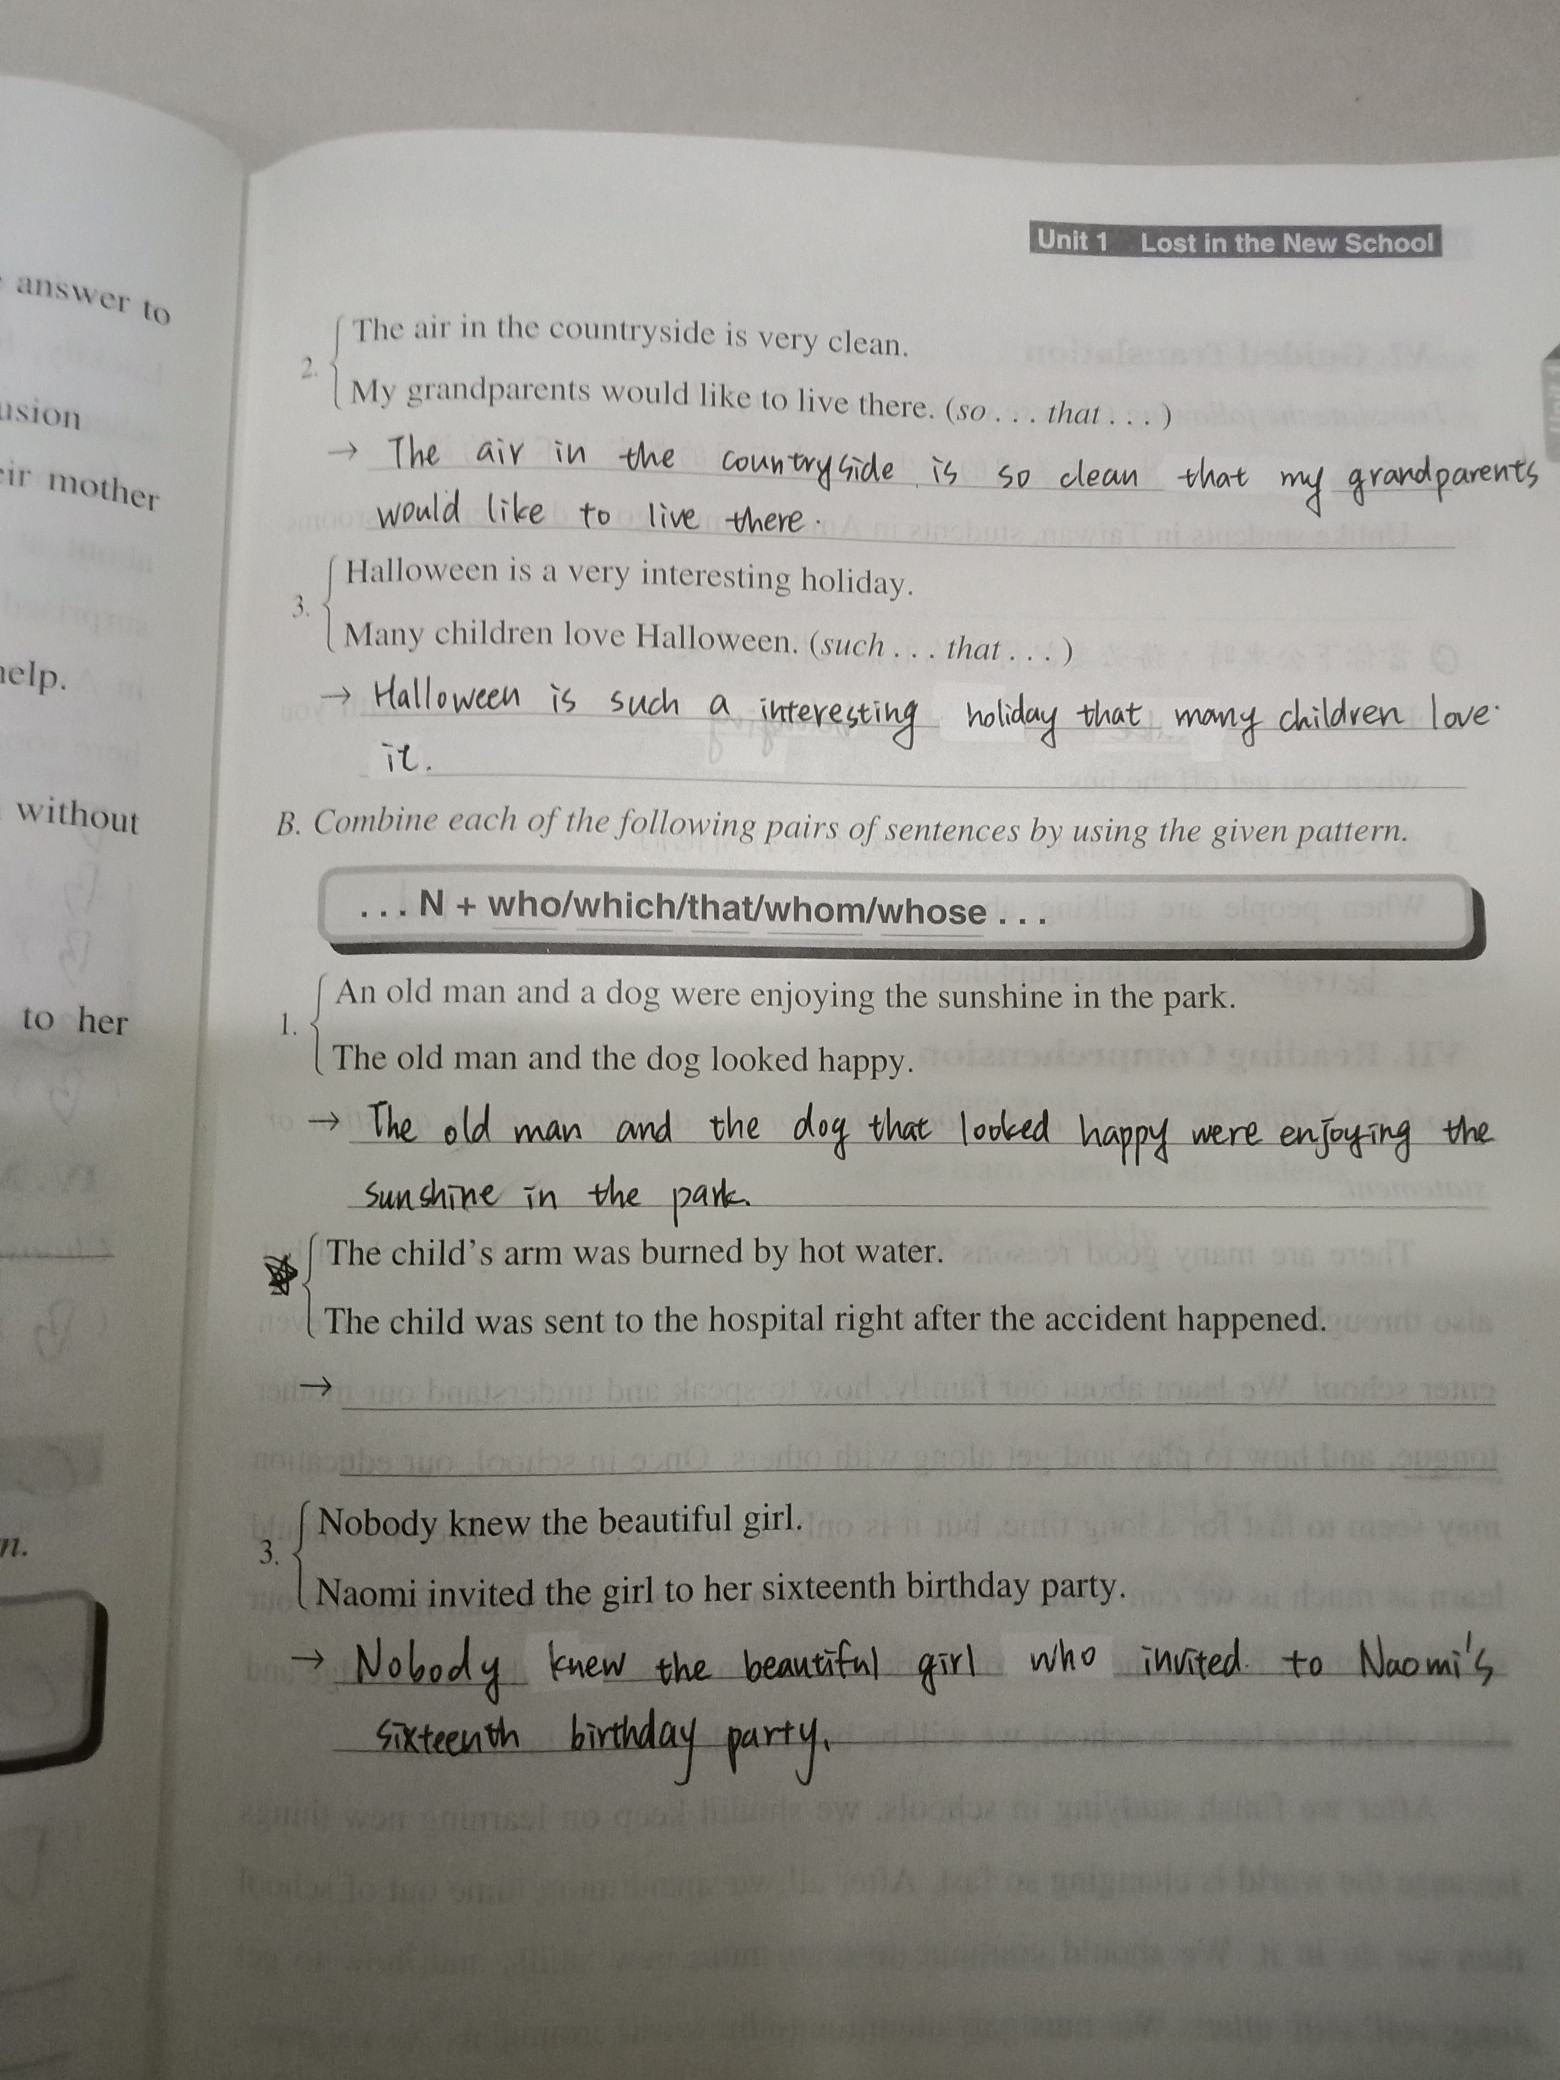 Unit 1 Lost in the New School
answer to
usion
eir mother
help.
without
to her
n.
2. The air in the countryside is very clean.
My grandparents would like to live there. (so . . . that . . . )
→ The air in the countryside is so clean that my grandparents
would like to live there.
3. Halloween is a very interesting holiday.
Many children love Halloween. (such . . . that . . . )
→ Halloween is such a interesting holiday that many children love
it.
B. Combine each of the following pairs of sentences by using the given pattern.
. . . N + who/which/that/whom/whose . . .
1. An old man and a dog were enjoying the sunshine in the park.
The old man and the dog looked happy.
→ The old man and the dog that looked happy were enjoying the
sunshine in the park.
The child's arm was burned by hot water.
The child was sent to the hospital right after the accident happened.
→
3. Nobody knew the beautiful girl.
Naomi invited the girl to her sixteenth birthday party.
→ Nobody knew the beautiful girl who invited to Naomi's
sixteenth birthday party.